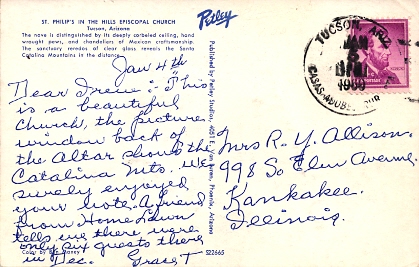 ST. PHILIP'S IN THE HILLS EPISCOPAL CHURCH
Tucson, Arizona
The nave is distinguished by its deeply corbeled ceiling, hand
wrought pews, and chandeliers of Mexican craftsmanship.
The sanctuary reredos of clear glass reveals the Santa
Catalina Mountains in the distance.
Petley
Published by Petley Studios, Phoenix, Arizona
TUCSON, ARIZ.
JAN
5
PM
CASAS ADOBES
Jan 4th
Dear Irene: This
is a beautiful
Church, the picture
window back of
the Altar shows the
Catalina Mts. We
surely enjoyed
your note. A friend
from Home Lawn
tells me there were
only six guests there
in Dec. Grace T
Mrs R. Y. Allison.
998 So Elm Avenue.
Kankakee.
Illinois.
Color by
S22665